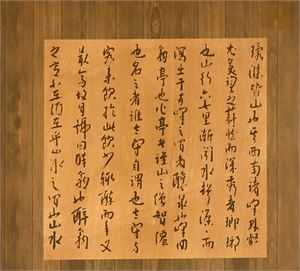 環滁皆山也其西南諸峰林壑
尤美望之蔚然而深秀者瑯琊
也山行六七里漸聞水聲潺潺而
瀉出于兩峰之間者釀泉也峰回
翁亭也作亭者誰山之僧智僊
也名之者誰太守自謂也太守與
客來飲於此飲少輒醉而年又
最高故自號曰醉翁也醉翁
之意不在酒在乎山水之間山水